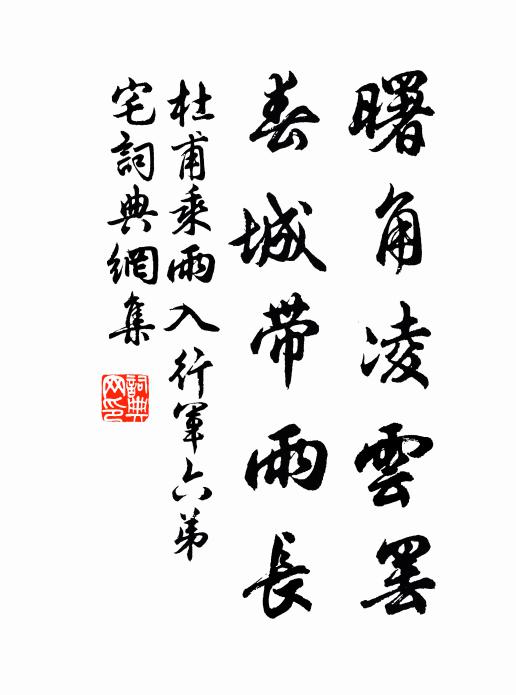 曙角凌雲罢
春城带雨長
杜甫乘雨入行軍六弟
宅詞典網集
詞典网印